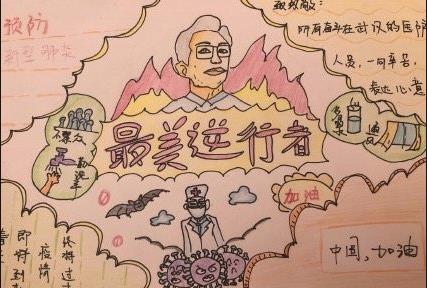 预防
新型肺炎
致敬:
所有奋斗在武汉的医护
人员,一句辛苦,
表达心意
不聚众
勤洗手
多喝水
通风
最美逆行者
加油
中国,加油
终将过
疫情
即将到